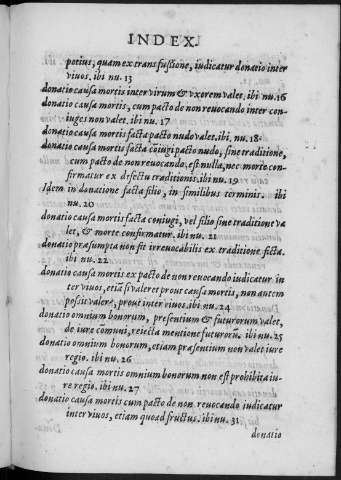 INDEX.
potius, quam ex transfussione, iudicatur donatio inter
viuos. ibi nu. 13
donatio causa mortis inter virum & vxorem valet. ibi nu. 16
donatio causa mortis, cum pacto de non reuocando inter con
iuges non valet. ibi nu. 17
donatio causa mortis facta pacto nudo valet. ibi. nu. 18.
donatio causa mortis facta cõiugi pacto nudo, sine traditione,
cum pacto de non reuocando, est nulla, nec morte con-
firmatur ex defectu traditionis. ibi nu. 19
Idem in donatione facta filio, in similibus terminis. ibi
nu. 20
donatio causa mortis facta coniugi, vel filio sine traditione va
let, & morte confirmatur. ibi nu. 21
donatio præsumpta non fit irreuocabilis ex traditione ficta.
ibi nu. 22
donatio causa mortis ex pacto de non reuocando iudicatur in
ter viuos, etiã si valeret prout causa mortis, non autem
possit valere, prout inter viuos. ibi nu. 24
donatio omnium bonorum, presentium & futurorum valet,
de iure communi, reiecta mentione futurorũ. ibi nu. 25
donatio omnium bonorum, etiam præsentium non valet iure
regio. ibi nu. 26
donatio causa mortis omnium bonorum non est prohibita iu-
re regio. ibi nu. 27
donatio causa mortis cum pacto de non reuocando iudicatur
inter viuos, etiam quoad fructus. ibi nu. 31
donatio